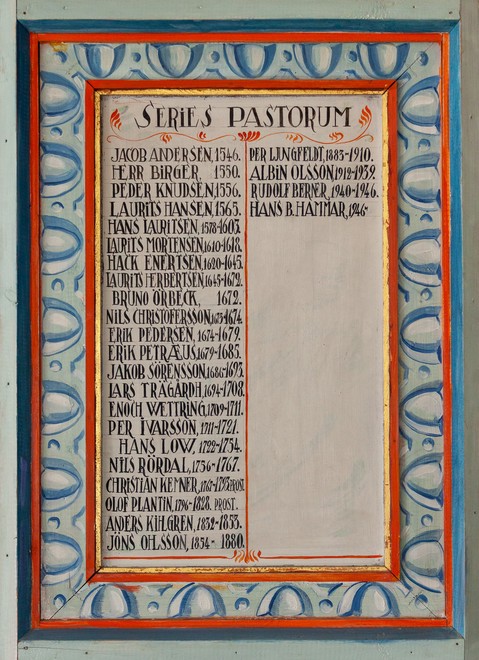 SERIES PASTORUM
JACOB ANDERSEN, 1546.
HERR BIRGER, 1550.
PEDER KNUDSEN, 1556.
LAURITS HANSEN, 1565.
HANS LAURITSEN, 1578-1603.
LAURITS MORTENSEN, 1610-1618.
HACK ENERTSEN, 1620-1645.
LAURITS HERBERTSEN, 1645-1672.
BRUNO ÖRBECK, 1672.
NILS CHRISTOFERSSON, 1673-1674.
ERIK PEDERSEN, 1674-1679.
ERIK PETRÆUS, 1679-1685.
JAKOB SÖRENSSON, 1686-1693.
LARS TRÄGÅRDH, 1694-1708.
ENOCH WETTRING, 1709-1711.
PER IVARSSON, 1711-1721.
HANS LOW, 1722-1754.
NILS RÖRDAL, 1756-1767.
CHRISTIAN KEMNER, 1767-1795 PROST.
OLOF PLANTIN, 1796-1828. PROST.
ANDERS KIHLGREN, 1832-1853.
JÖNS OHLSSON, 1854- 1880.
PER LJUNGFELDT, 1883-1910.
ALBIN OLSSON, 1912-1939.
RUDOLF BERNER, 1940-1946.
HANS B. HAMMAR, 1946-